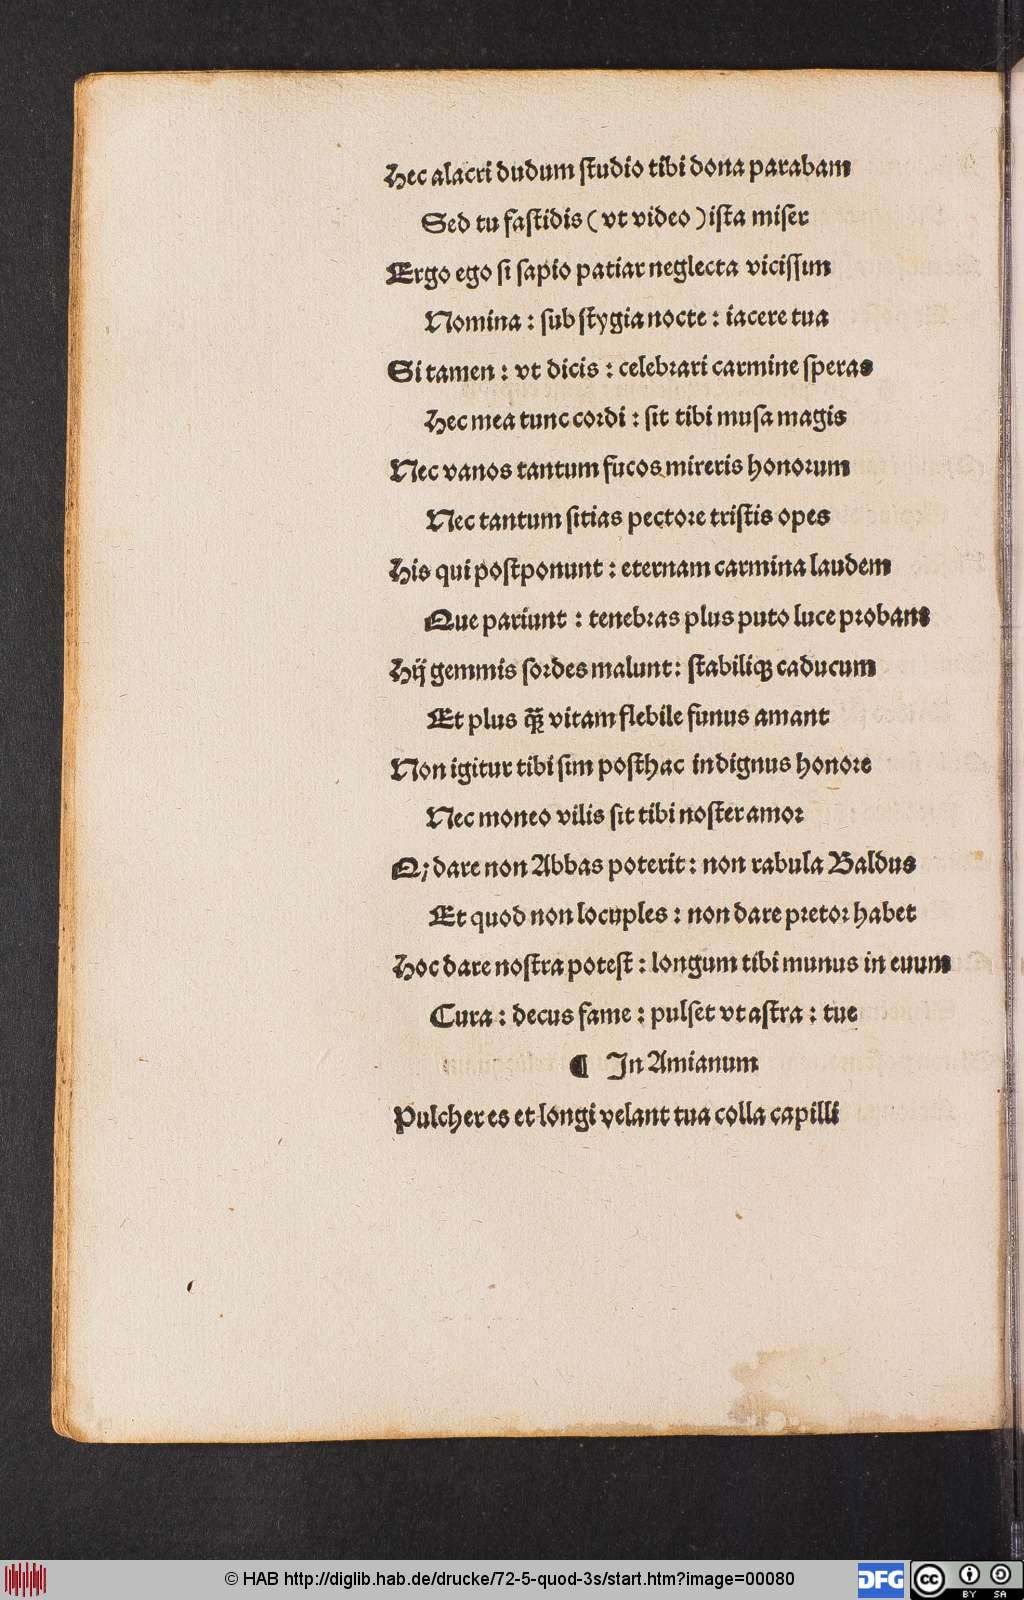 Hec alacri dudum ſtudio tibi dona parabam
Sed tu faſtidis ( vt video ) iſta miſer
Ergo ego ſi ſapio patiar neglecta viciſſim
Nomina : ſub ſtygia nocte : iacere tua
Si tamen : vt dicis : celebꝛari carmine ſperas
Hec mea tunc coꝛdi : ſit tibi muſa magis
Nec vanos tantum fucos mireris honoꝛum
Nec tantum ſitias pectoꝛe triſtis opes
His qui poſtponunt : eternam carmina laudem
Que pariunt : tenebꝛas plus puto luce pꝛobant
Hĳ gemmis ſoꝛdes malunt : ſtabiliqꝫ caducum
Et plus qͣꝫ vitam flebile funus amant
Non igitur tibi ſim poſthac indignus honoꝛe
Nec moneo vilis ſit tibi noſter amoꝛ
Q; dare non Abbas poterit : non rabula Baldus
Et quod non locuples : non dare pꝛetoꝛ habet
Hoc dare noſtra poteſt : longum tibi munus in euum
Cura : decus fame : pulſet vt aſtra : tue
¶ In Amianum
Pulcher es et longi velant tua colla capilli
© HAB http://diglib.hab.de/drucke/72-5-quod-3s/start.htm?image=00080
DFG
cc BY SA